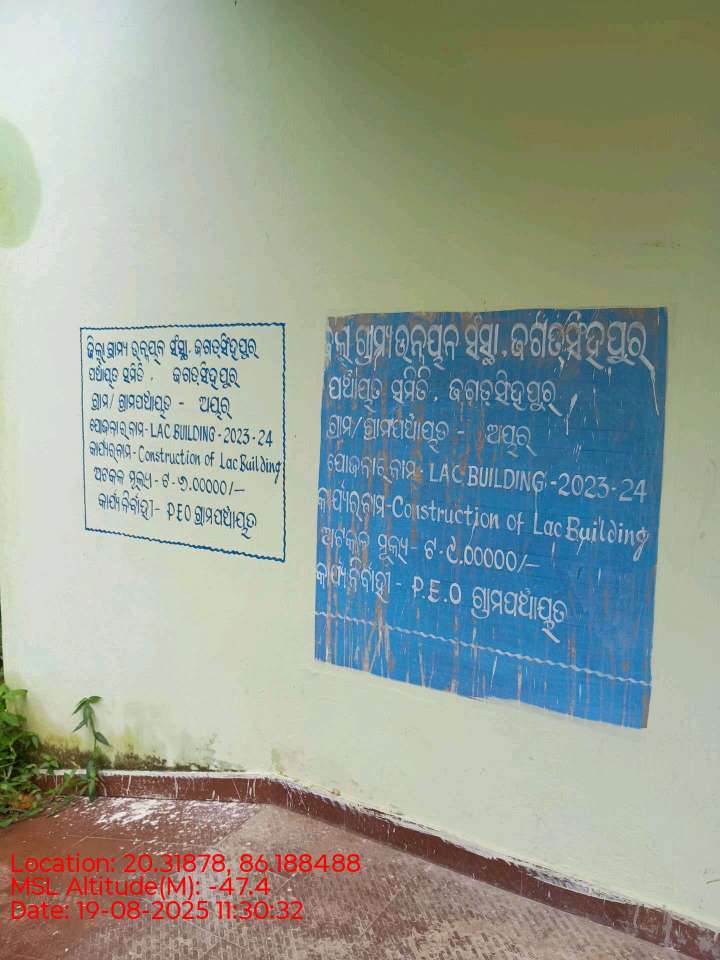 ଜିଲ୍ଲା ଗ୍ରାମ୍ୟ ଉନ୍ନୟନ ସଂସ୍ଥା, ଜଗତସିଂହପୁର
ପଞ୍ଚାୟତ ସମିତି . ଜଗତସିଂହପୁର
ଗ୍ରାମ/ ଗ୍ରାମପଞ୍ଚାୟତ - ଅଫର
ଯୋଜନାର ନାମ - LAC BUILDING - 2023-24
କାର୍ଯ୍ୟର ନାମ - Construction of Lac Building
ଅଟକଳ ମୂଲ୍ୟ - ଟ -୭.00000/-
କାର୍ଯ୍ୟ ନିର୍ବାହୀ - P.E.O ଗ୍ରାମପଞ୍ଚାୟତ
ଜିଲ୍ଲା ଗ୍ରାମ୍ୟ ଉନ୍ନୟନ ସଂସ୍ଥା, ଜଗତସିଂହପୁର
ପଞ୍ଚାୟତ ସମିତି . ଜଗତସିଂହପୁର
ଗ୍ରାମ/ଗ୍ରାମପଞ୍ଚାୟତ - ଅଫର
ଯୋଜନାର ନାମ - LAC BUILDING -2023-24
କାର୍ଯ୍ୟର ନାମ-Construction of Lac Building
ଅଟକଳ ମୂଲ୍ୟ - ଟ
କାର୍ଯ୍ୟ ନିର୍ବାହୀ - P.E.O ଗ୍ରାମପଞ୍ଚାୟତ
Location: 20.31878, 86.188488
MSL Altitude(M): -47.4
Date: 19-08-2025 11:30:32